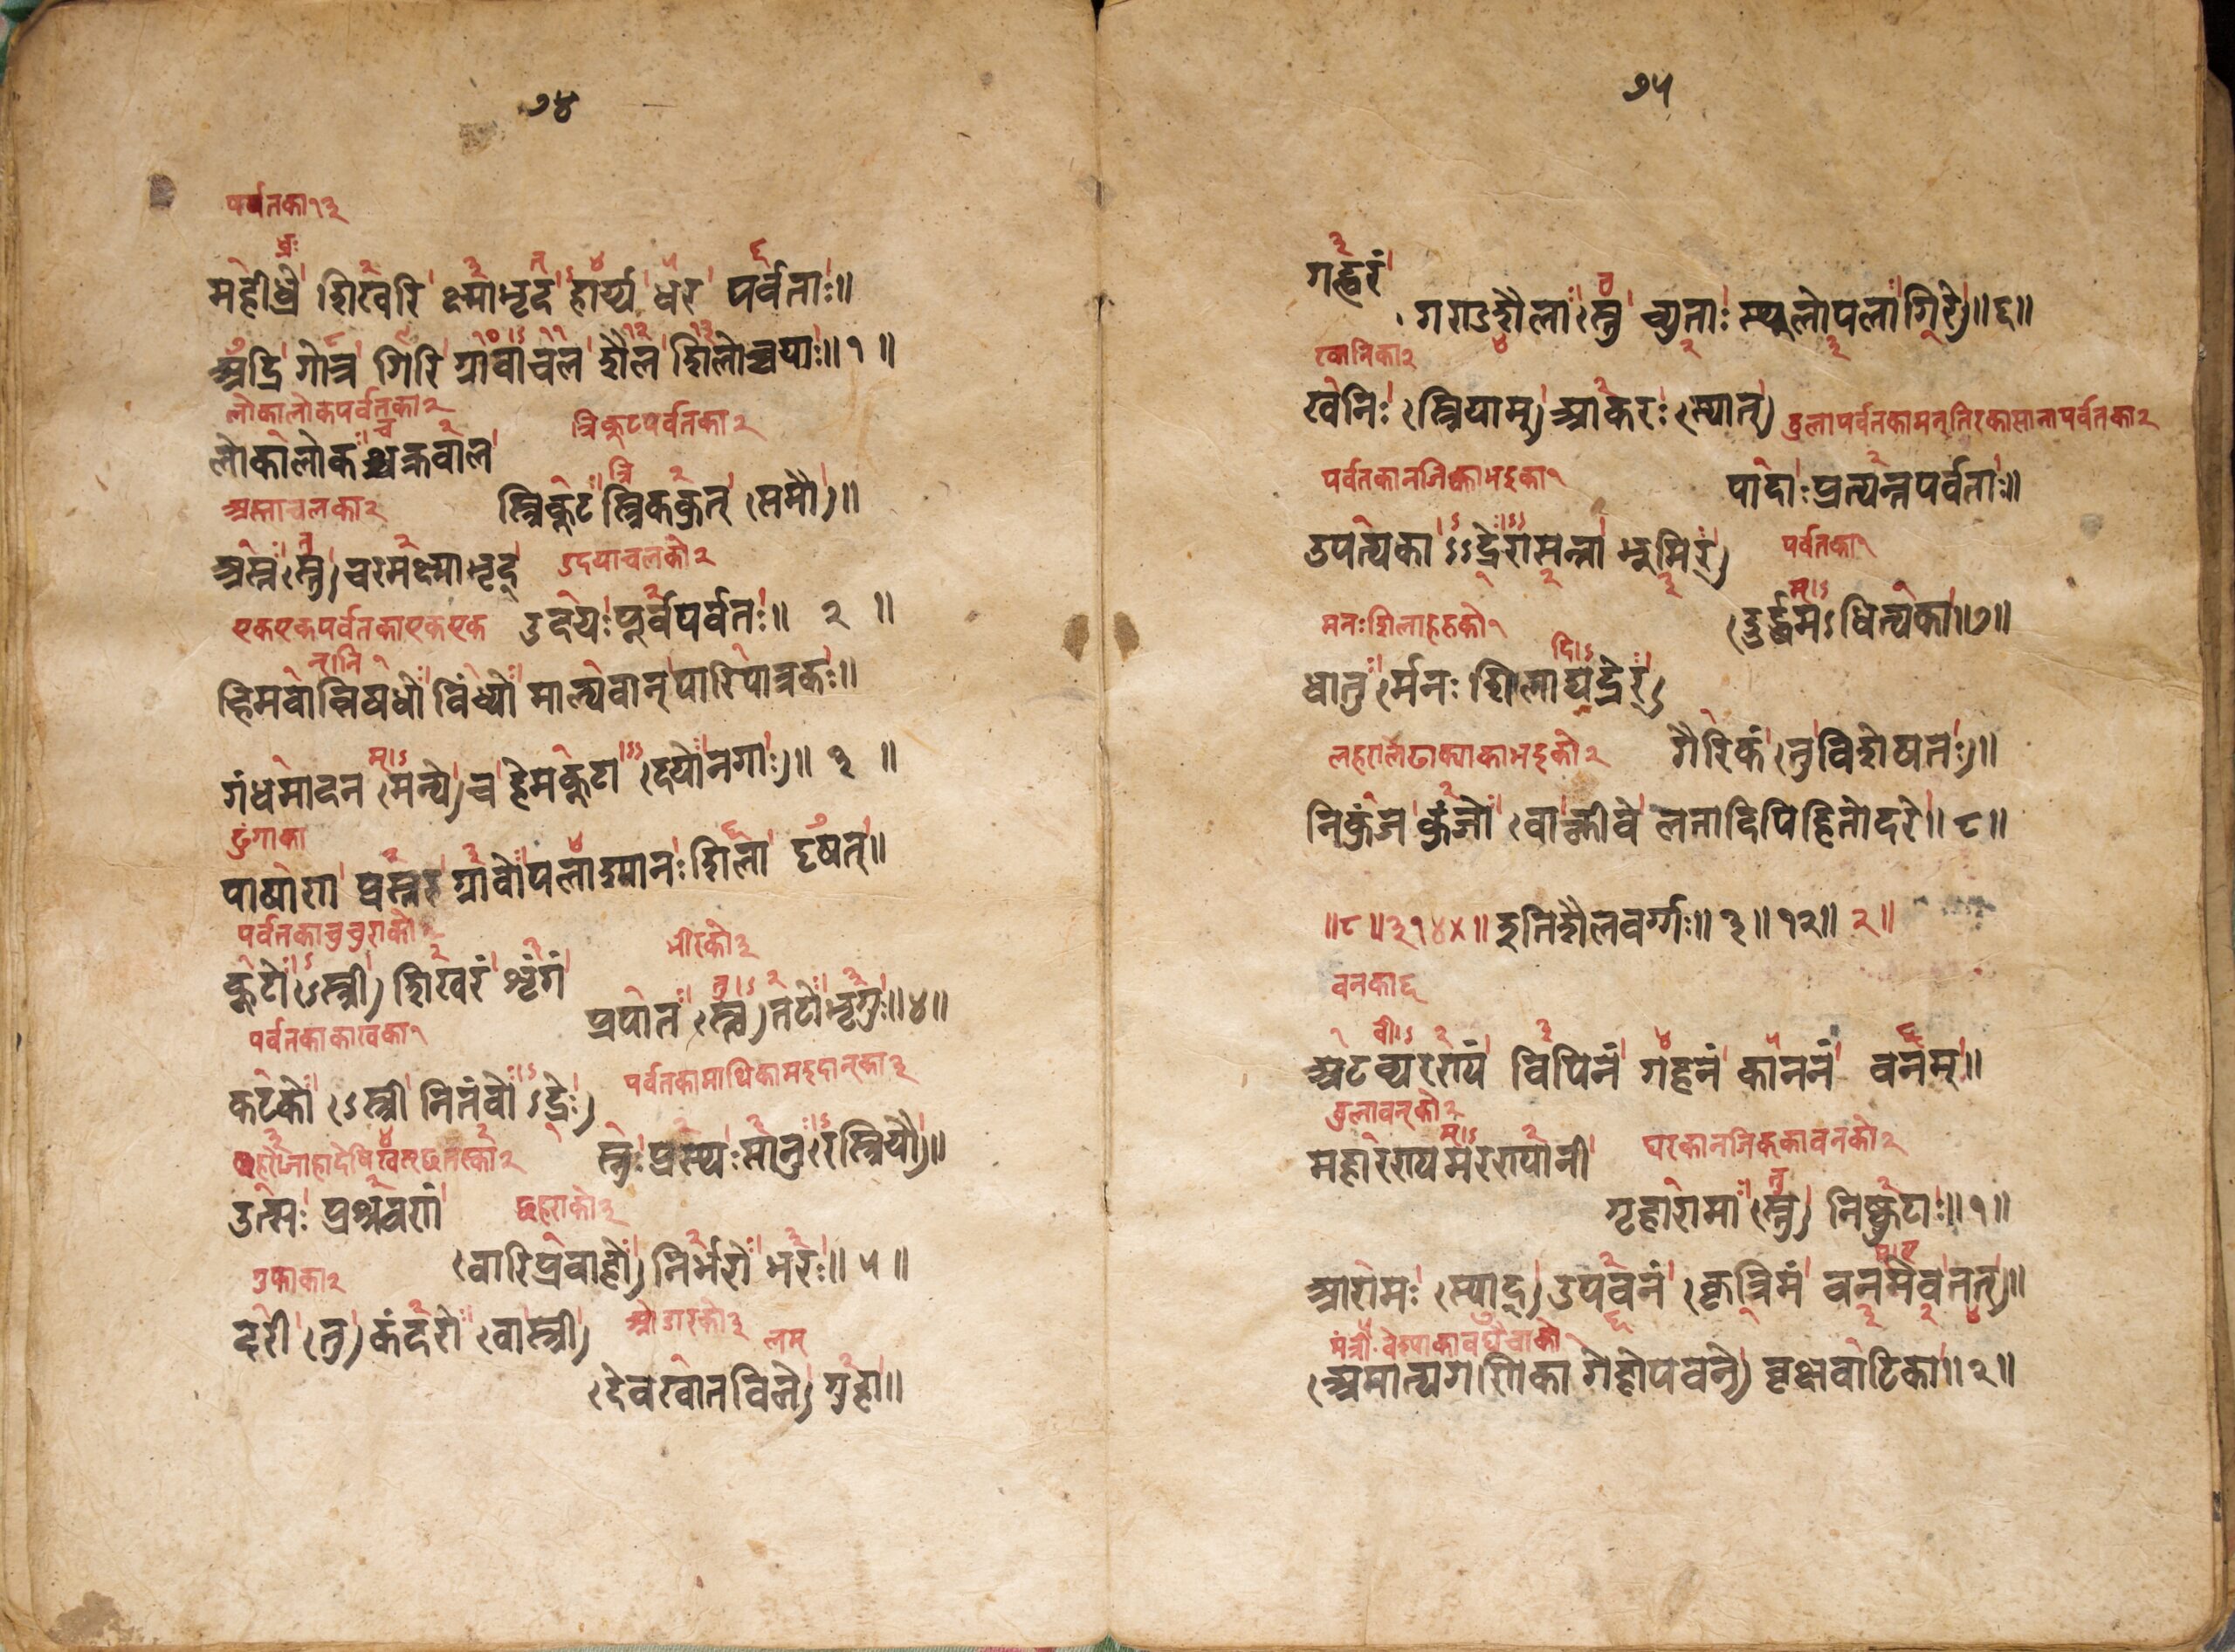 ७४
पर्वतका१३
महीध्रे शिखरि क्ष्माभृद हार्य्य धर पर्वताः॥
अद्रि गोत्र गिरि ग्रावाचल शैल शिलोच्चयाः॥१॥
लोकालोकपर्वतका२
त्रिकुटपर्वतका२
लोकालोकश्चक्रवाल
स्त्रिकुटस्त्रिककुत् (समौ)॥
अस्ताचलका२
अस्त (स्तु) चरमक्ष्माभृद्
उदयाचलको२
उदयः पूर्वपर्वतः॥ २ ॥
एकएकपर्वतकाएकएक
हिमवान्निषधो विंध्यो माल्यवान् पारिपात्रकः॥
गंधमादन (मन्ये) च हेमकुटा (दयो नगाः)॥ ३ ॥
ढुंगाका
पाषाण प्रस्तर ग्रावोपलाश्मानः शिला दृषत्॥
पर्वतकाचुचुराको३
कुटो (ऽस्त्री) शिखरं शृंगं
भीरको३
प्रपात (स्तु) तटो भृगुः॥४॥
पर्वतकाकाखका१
कटको (ऽस्त्री नितंवो ऽद्रेः)
पर्वतकामाथिकामइदान्का३
स्नुः प्रस्थः सानु (रस्त्रियौ)॥
उत्सः प्रश्रवणं
छहराको३
(वारिप्रवाहो) निर्झरो झरः॥ ५ ॥
दरी (तु) कंदरो (वास्त्री)
ओडारको३
(देवखातविले) गुहा॥
७५
गह्वरं
(गण्डशैला (स्तु च्युताः स्थुलोपला गिरे)॥६॥
खानिका२
खनिः (स्त्रियाम्) आकरः (स्यात्)
ठुलापर्वतकामन्तिरकासानापर्वतका२
पादाः प्रत्यन्तपर्वताः॥
पर्वतकानजिकाभइका१
उपत्यका (ऽऽद्रेरासन्ना भूमिर्)
पर्वतका१
(दुर्द्धमऽधित्यका॥७॥
मनःशिलाहरुको१
धातु (र्मनः शिलाद्यद्रेर्)
गैरिकं (तु विशेषतः)॥
लहरालेढाक्याकाभइको२
निकुंज कुंजो (वा क्लीवे लतादिपिहितोदरे॥८॥
॥८॥३१४४॥ इति शैलवर्गः॥ ३॥१२॥ २॥
वनका६
अटव्यरण्यं विपिनं गहनं काननं वनम्॥
ठुलावन्को२
महारण्यमरण्यानी
घरकानजिककावनको२
गृहारामा (स्तु) निष्कुटाः॥१॥
आरामः (स्याद्) उपवनं (कृत्रिमं वनमेव तत्)॥
(अमात्यगणिका गेहोपवने) वृक्षवाटिका॥२॥